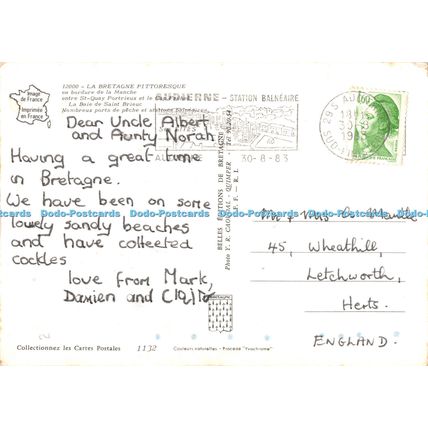 Image
de France
Imprimée
en France
12000 - LA BRETAGNE PITTORESQUE
en bordure de la Manche
entre St-Quay Portrieux et le
La Baie de Saint Brieuc
Nombreux ports de pêche et stations balnéaires
AUDIERNE - STATION BALNÉAIRE
30-8-83
Dear Uncle Albert
and Aunty Norah,
Having a great time
in Bretagne.
We have been on some
lovely sandy beaches
and have collected
cockles
love from Mark,
Damien and
BELLES ÉDITIONS DE BRETAGNE
Photo Y. R. CAOUDAL - QUIMPER - Tél 90.20.54
Mr & Mrs
45, Wheathill,
Letchworth,
Herts.
ENGLAND.
BRETAGNE
Collectionnez les Cartes Postales
1132
Couleurs naturelles - Procédé "Yvochrome"
Dodo-Postcards Dodo-Postcards Dodo-Postcards Dodo-Postcards
Dodo-Postcards Dodo-Postcards Dodo-Postcards Dodo-Postcards